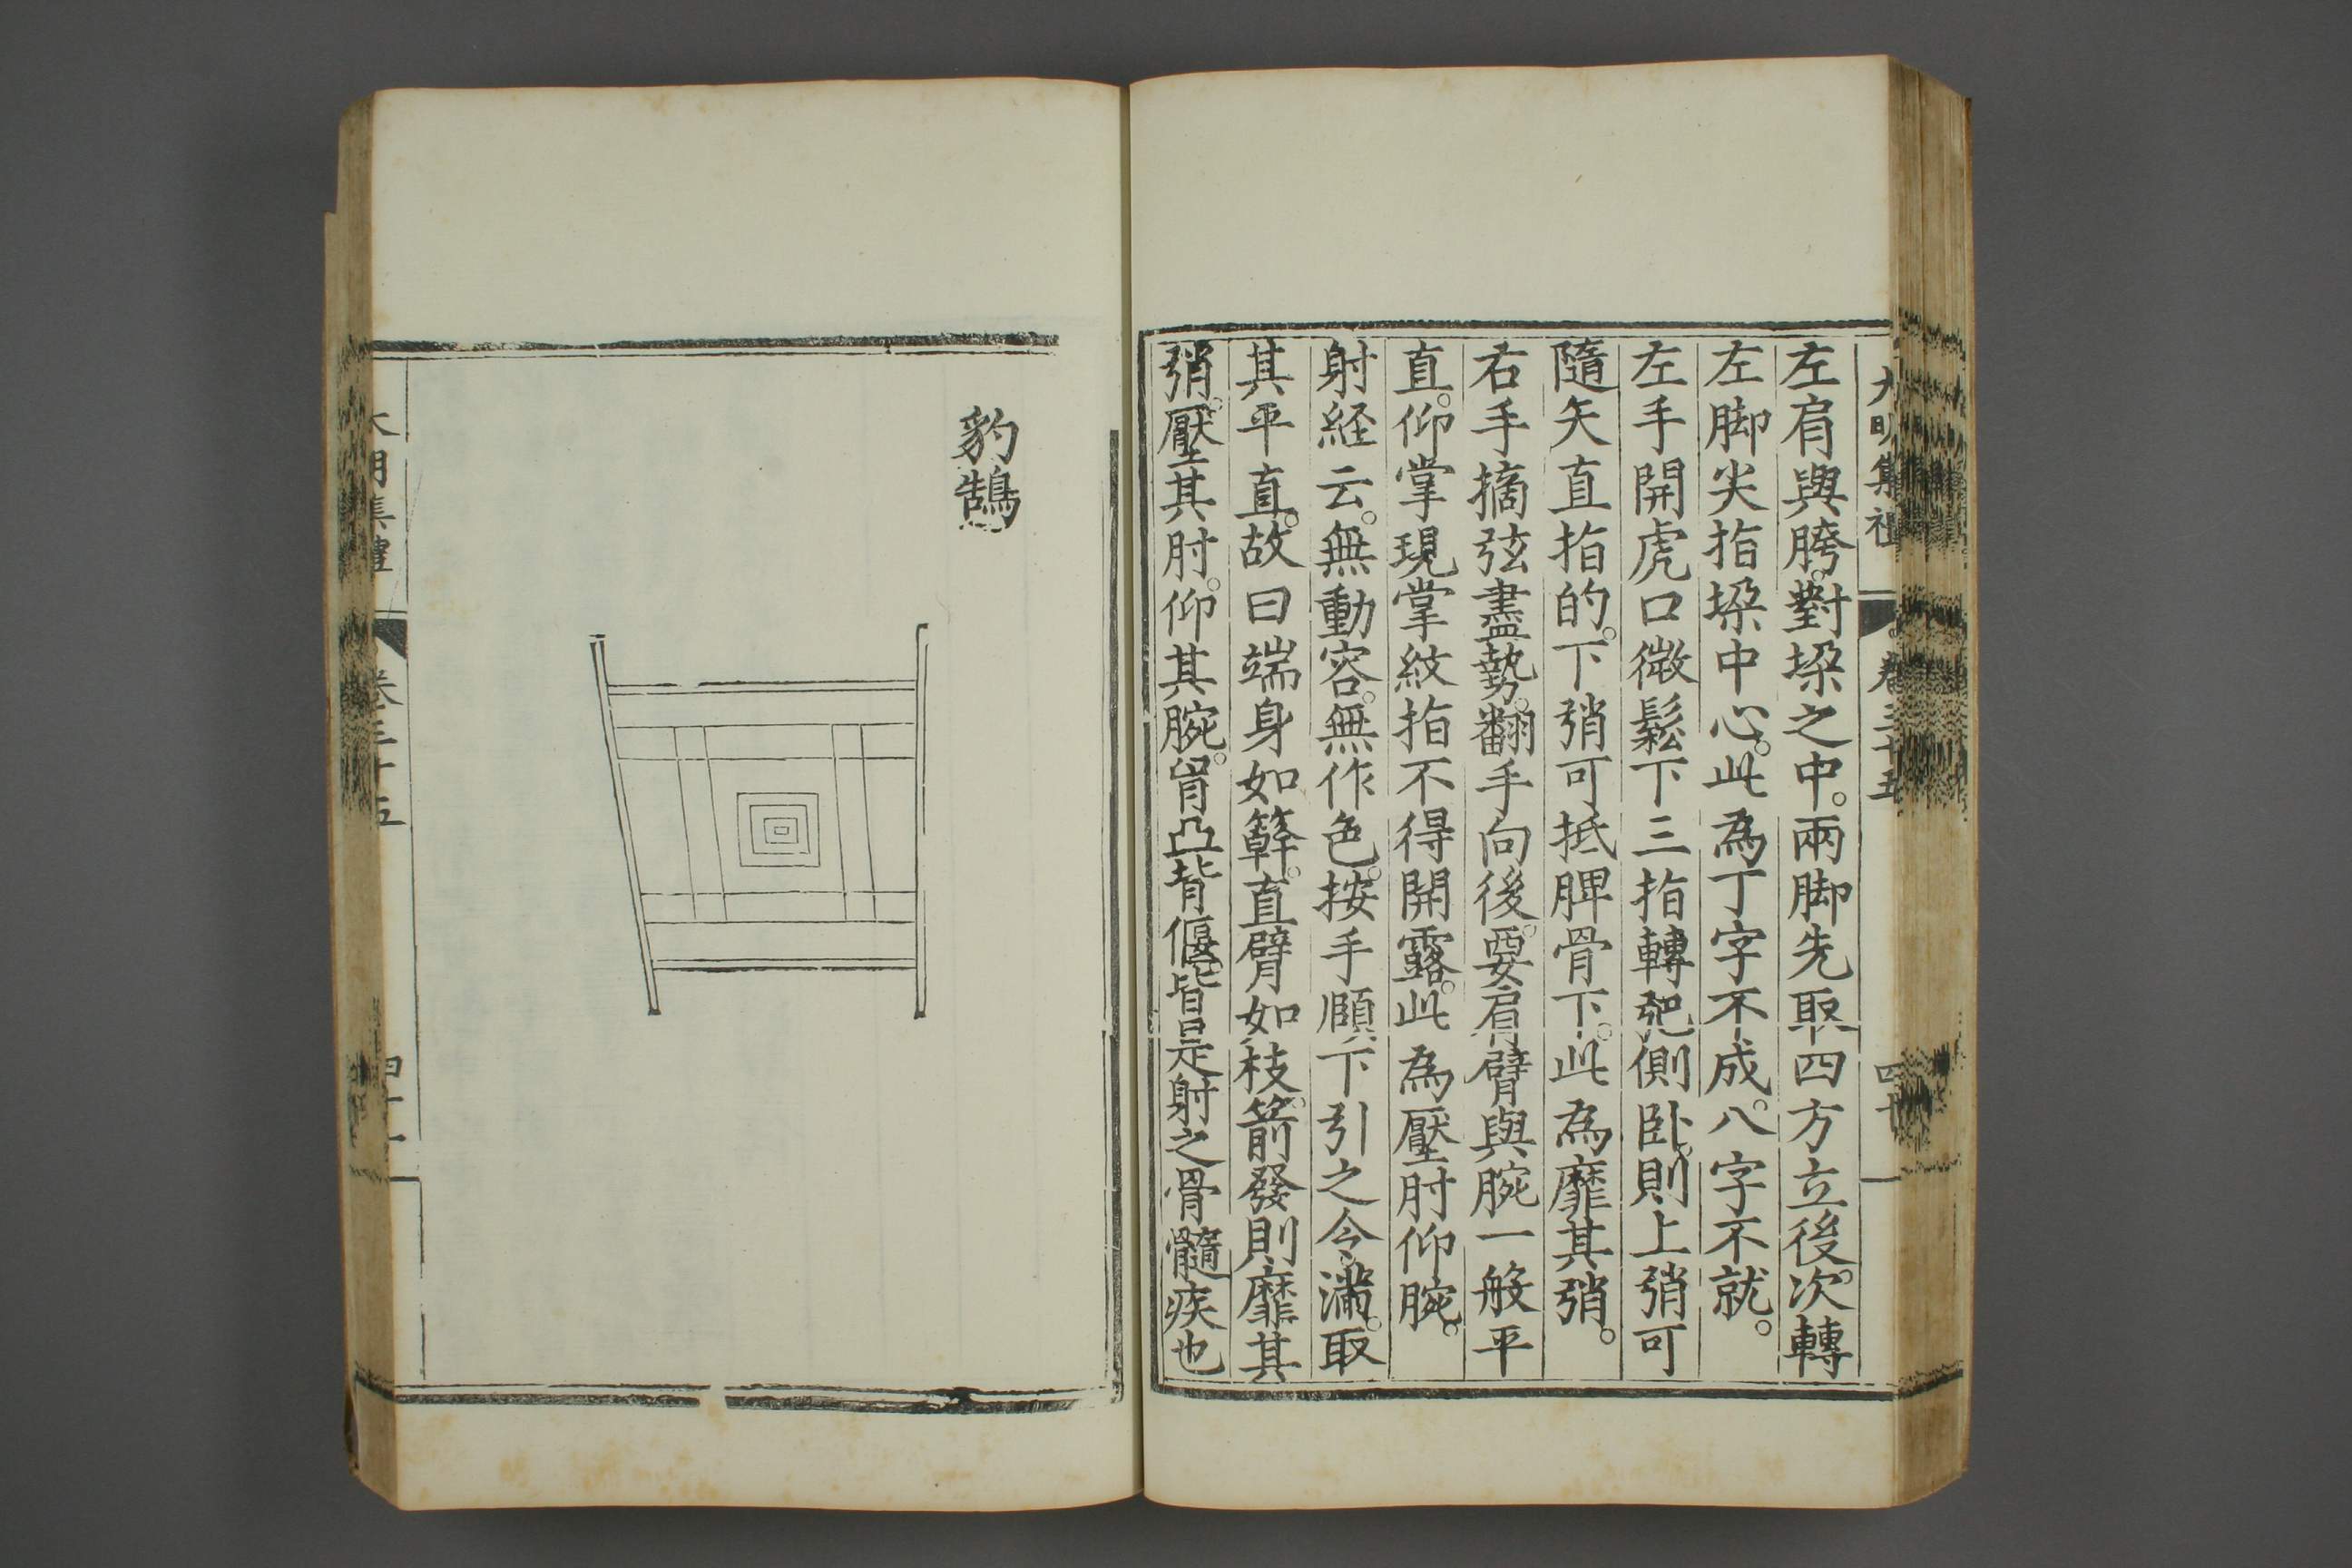 大明集禮 卷三十五 四十
左肩與胯。對垜之中。兩脚先取四方立後。次轉
左脚尖指垜中心。此為丁字不成。八字不就。
左手開虎口微鬆下三指轉弝側臥。則上弰可
隨矢直指的。下弰可抵脾骨下。此為靡其弰。
右手摘弦盡勢。翻手向後。要肩臂與腕一般平
直。仰掌現掌紋指不得開露。此為壓肘仰腕。
射経云。無動容。無作色。按手頤下引之令滿。取
其平直。故曰端身如簳。直臂如枝。箭發則靡其
弰。壓其肘。仰其腕。胷凸背偃。皆是射之骨髓疾也
豹鵠
大明集禮 卷三十五 四十一